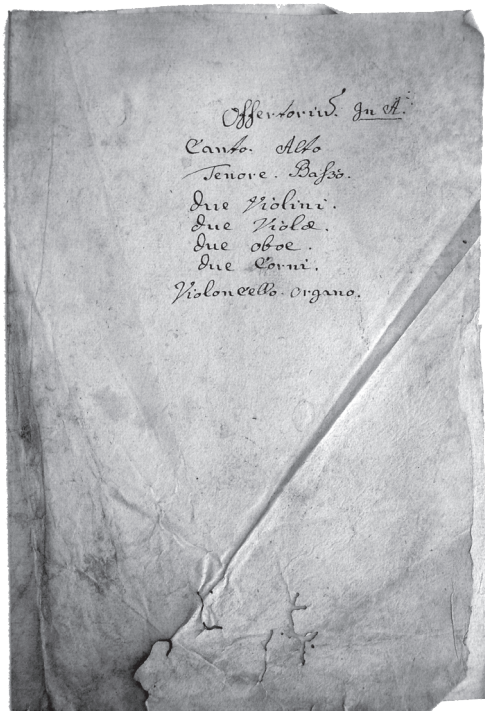 Offertoriū. In A.
Canto. Alto
Tenore. Basso.
due Violini.
due Violæ.
due oboe.
due Corni.
Violoncello. organo.